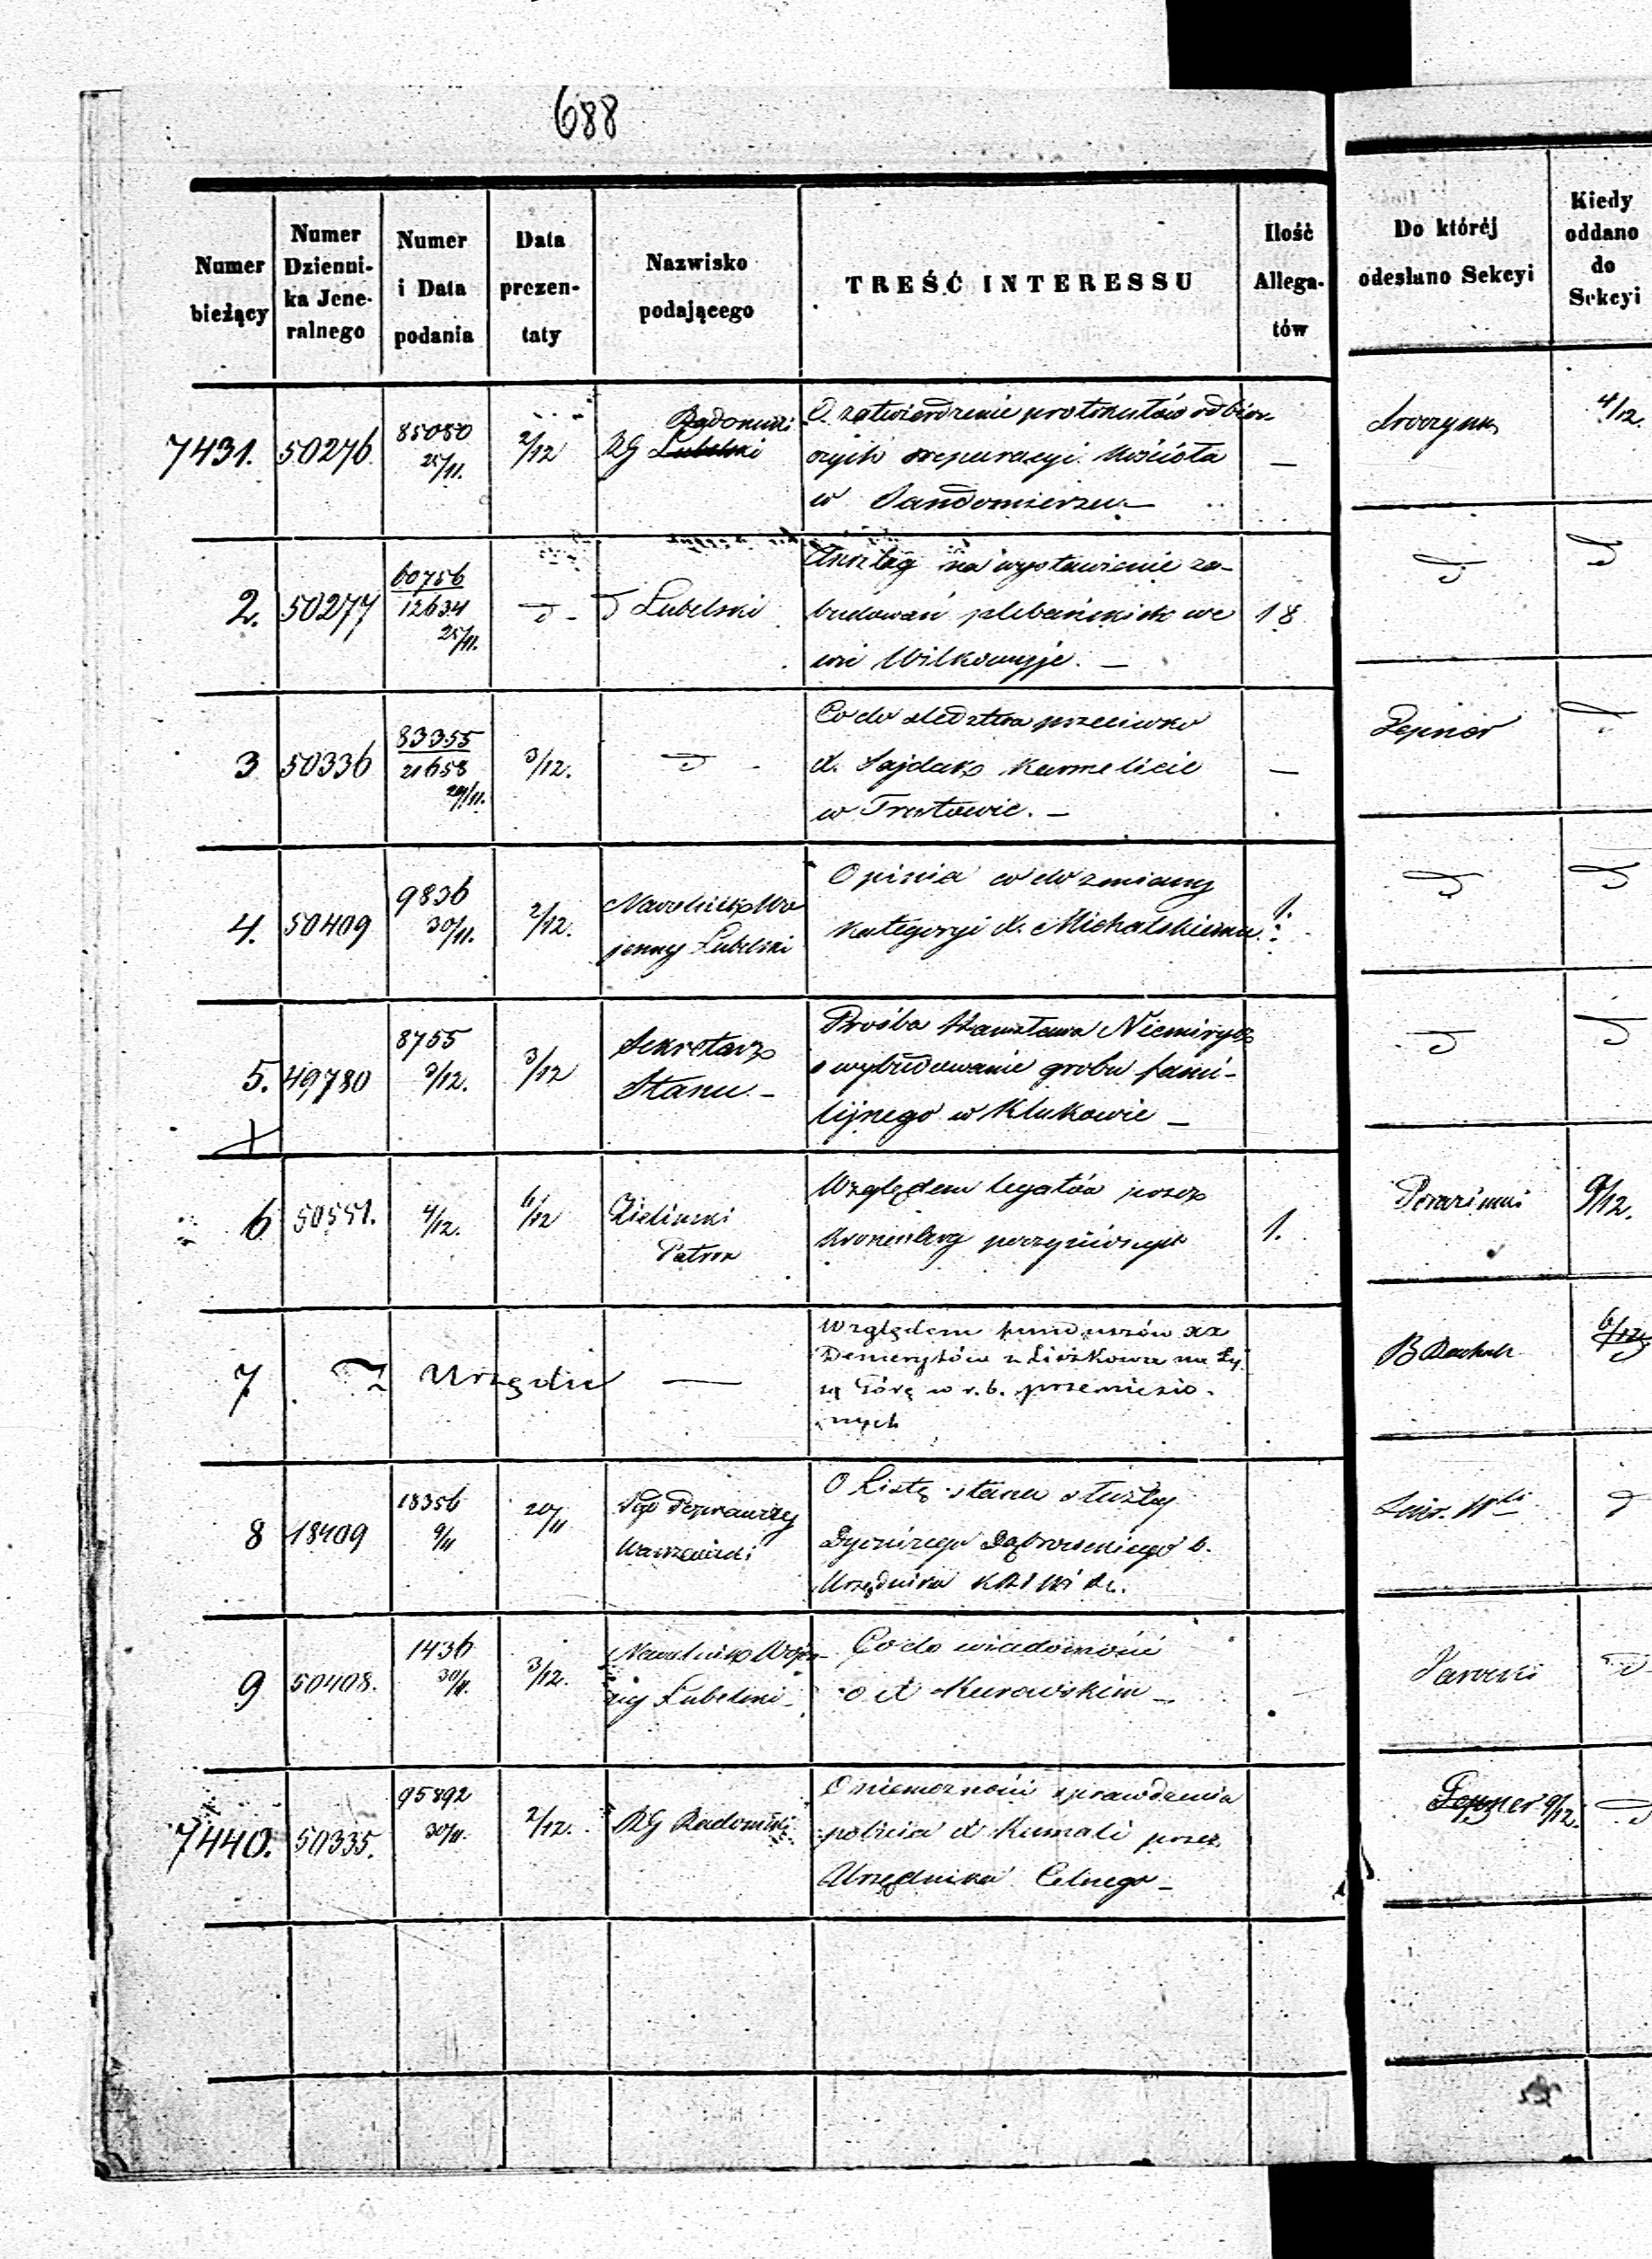 688
Numer bieżący
Numer Dzienni-ka Jene-ralnego
Numer i Data podania
Data prezen-taty
Nazwisko podającego
TREŚĆ INTERESSU
Ilość Allega-tów
Do któréj odesłano Sekcyi
Kiedy oddano do Sekcyi
7431. 50276 85080 25/11. 2/12 RG Radomski Lubelski
O zatwierdzenie protokułów odbior-
czych reperacyi Kościoła —
w Sandomierzu —
4/12.
2. 50277 60756 12634 25/11. Lubelski
Anszlag na wystawienie za-
budowań plebańskich we 18
wsi Wilkowyje. —
3 50336 83355 21658 29/11. 3/12.
Co do śledztwa przeciwko
X. Sajdak Karmelicie —
w —
Lepner
4. 50409 9836 30/11. 2/12. Naczelnik Wo
jenny Lubelski
Opinia co do zmiany
Kategoryi X. Michalskiemu 1.
5. 49780 8755 3/12. 3/12 Sekretarz
Stanu —
Prośba Stanisława Niemirycz
o wybudowanie grobu fami-
lijnego w Klukowie —
6 50551. 4/12. 6/12 Zieliński
Patron
Względem legatów przez
Kronenberg poczynionych 1.
9/12.
7 Z Urzędu —
Względem funduszów xx
Demerytów z Liszkowa na Ły
są Górę w r. b. przeniesio-
nych
6/12
8 18409 18356 9/11 20/11 Sąd Poprawczy
Warszawski
O Listę stanu służby
Dyonizego Dąbrowskiego b.
Urzędnika
9 50408. 1436 30/11. 3/12. Naczelnik Woje-
ny Lubelski —
Co do wiadomości
o X Kurowskim —
7440. 50335. 95892 30/11. 2/12. RG Radomski
O niemożności sprawdzenia
pobicia X Kumali przez
Urzędnika Celnego —
Lepner 9/12.